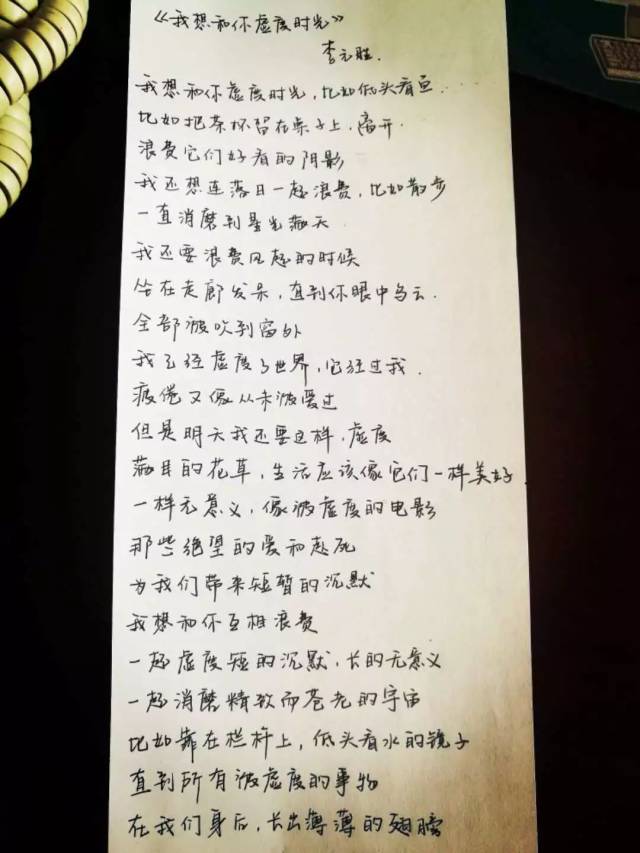 《我想和你虚度时光》
李元胜.
我想和你虚度时光,比如低头看鱼.
比如把茶杯留在桌子上,离开.
浪费它们好看的阴影
我还想连落日一起浪费,比如散步
一直消磨到星光满天
我还要浪费风起的时候
坐在走廊发呆,直到你眼中乌云.
全部被吹到窗外
我已经虚度了世界,它经过我.
疲倦又像从未被爱过
但是明天我还要这样,虚度
满目的花草,生活应该像它们一样美好.
一样无意义,像被虚度的电影
那些绝望的爱和赴死
为我们带来短暂的沉默
我想和你互相浪费
一起虚度短的沉默,长的无意义
一起消磨精致而苍老的宇宙
比如靠在栏杆上,低头看水的镜子
直到所有被虚度的事物
在我们身后,长出薄薄的翅膀